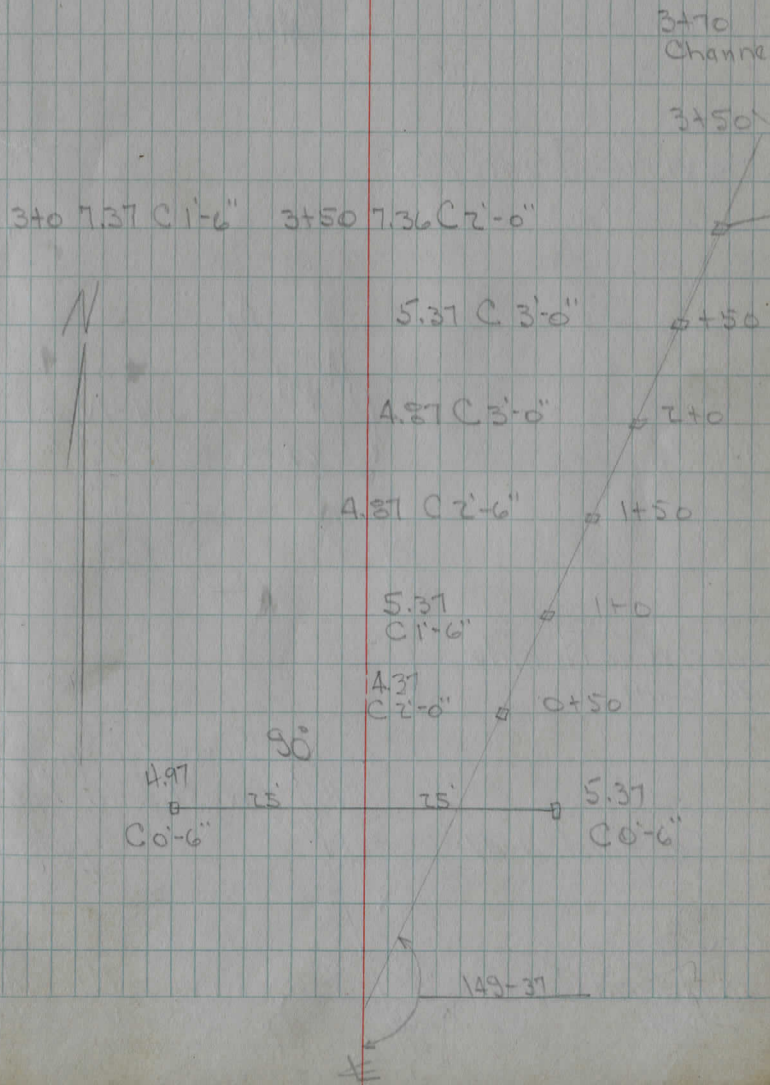 3+70
Channe
3+50
3+0 7.37 C 1'-6" 3+50 7.36 C 2'-0"
N
5.37 C 3'-0" +50
4.87 C 3'-0" 2+0
4.87 C 2'-6" 1+50
5.37 1+0
C 1'-6"
4.37
C 2'-0" 0+50
90°
4.97
25' 25' 5.37
C 0'-6" C 0'-6"
149-37